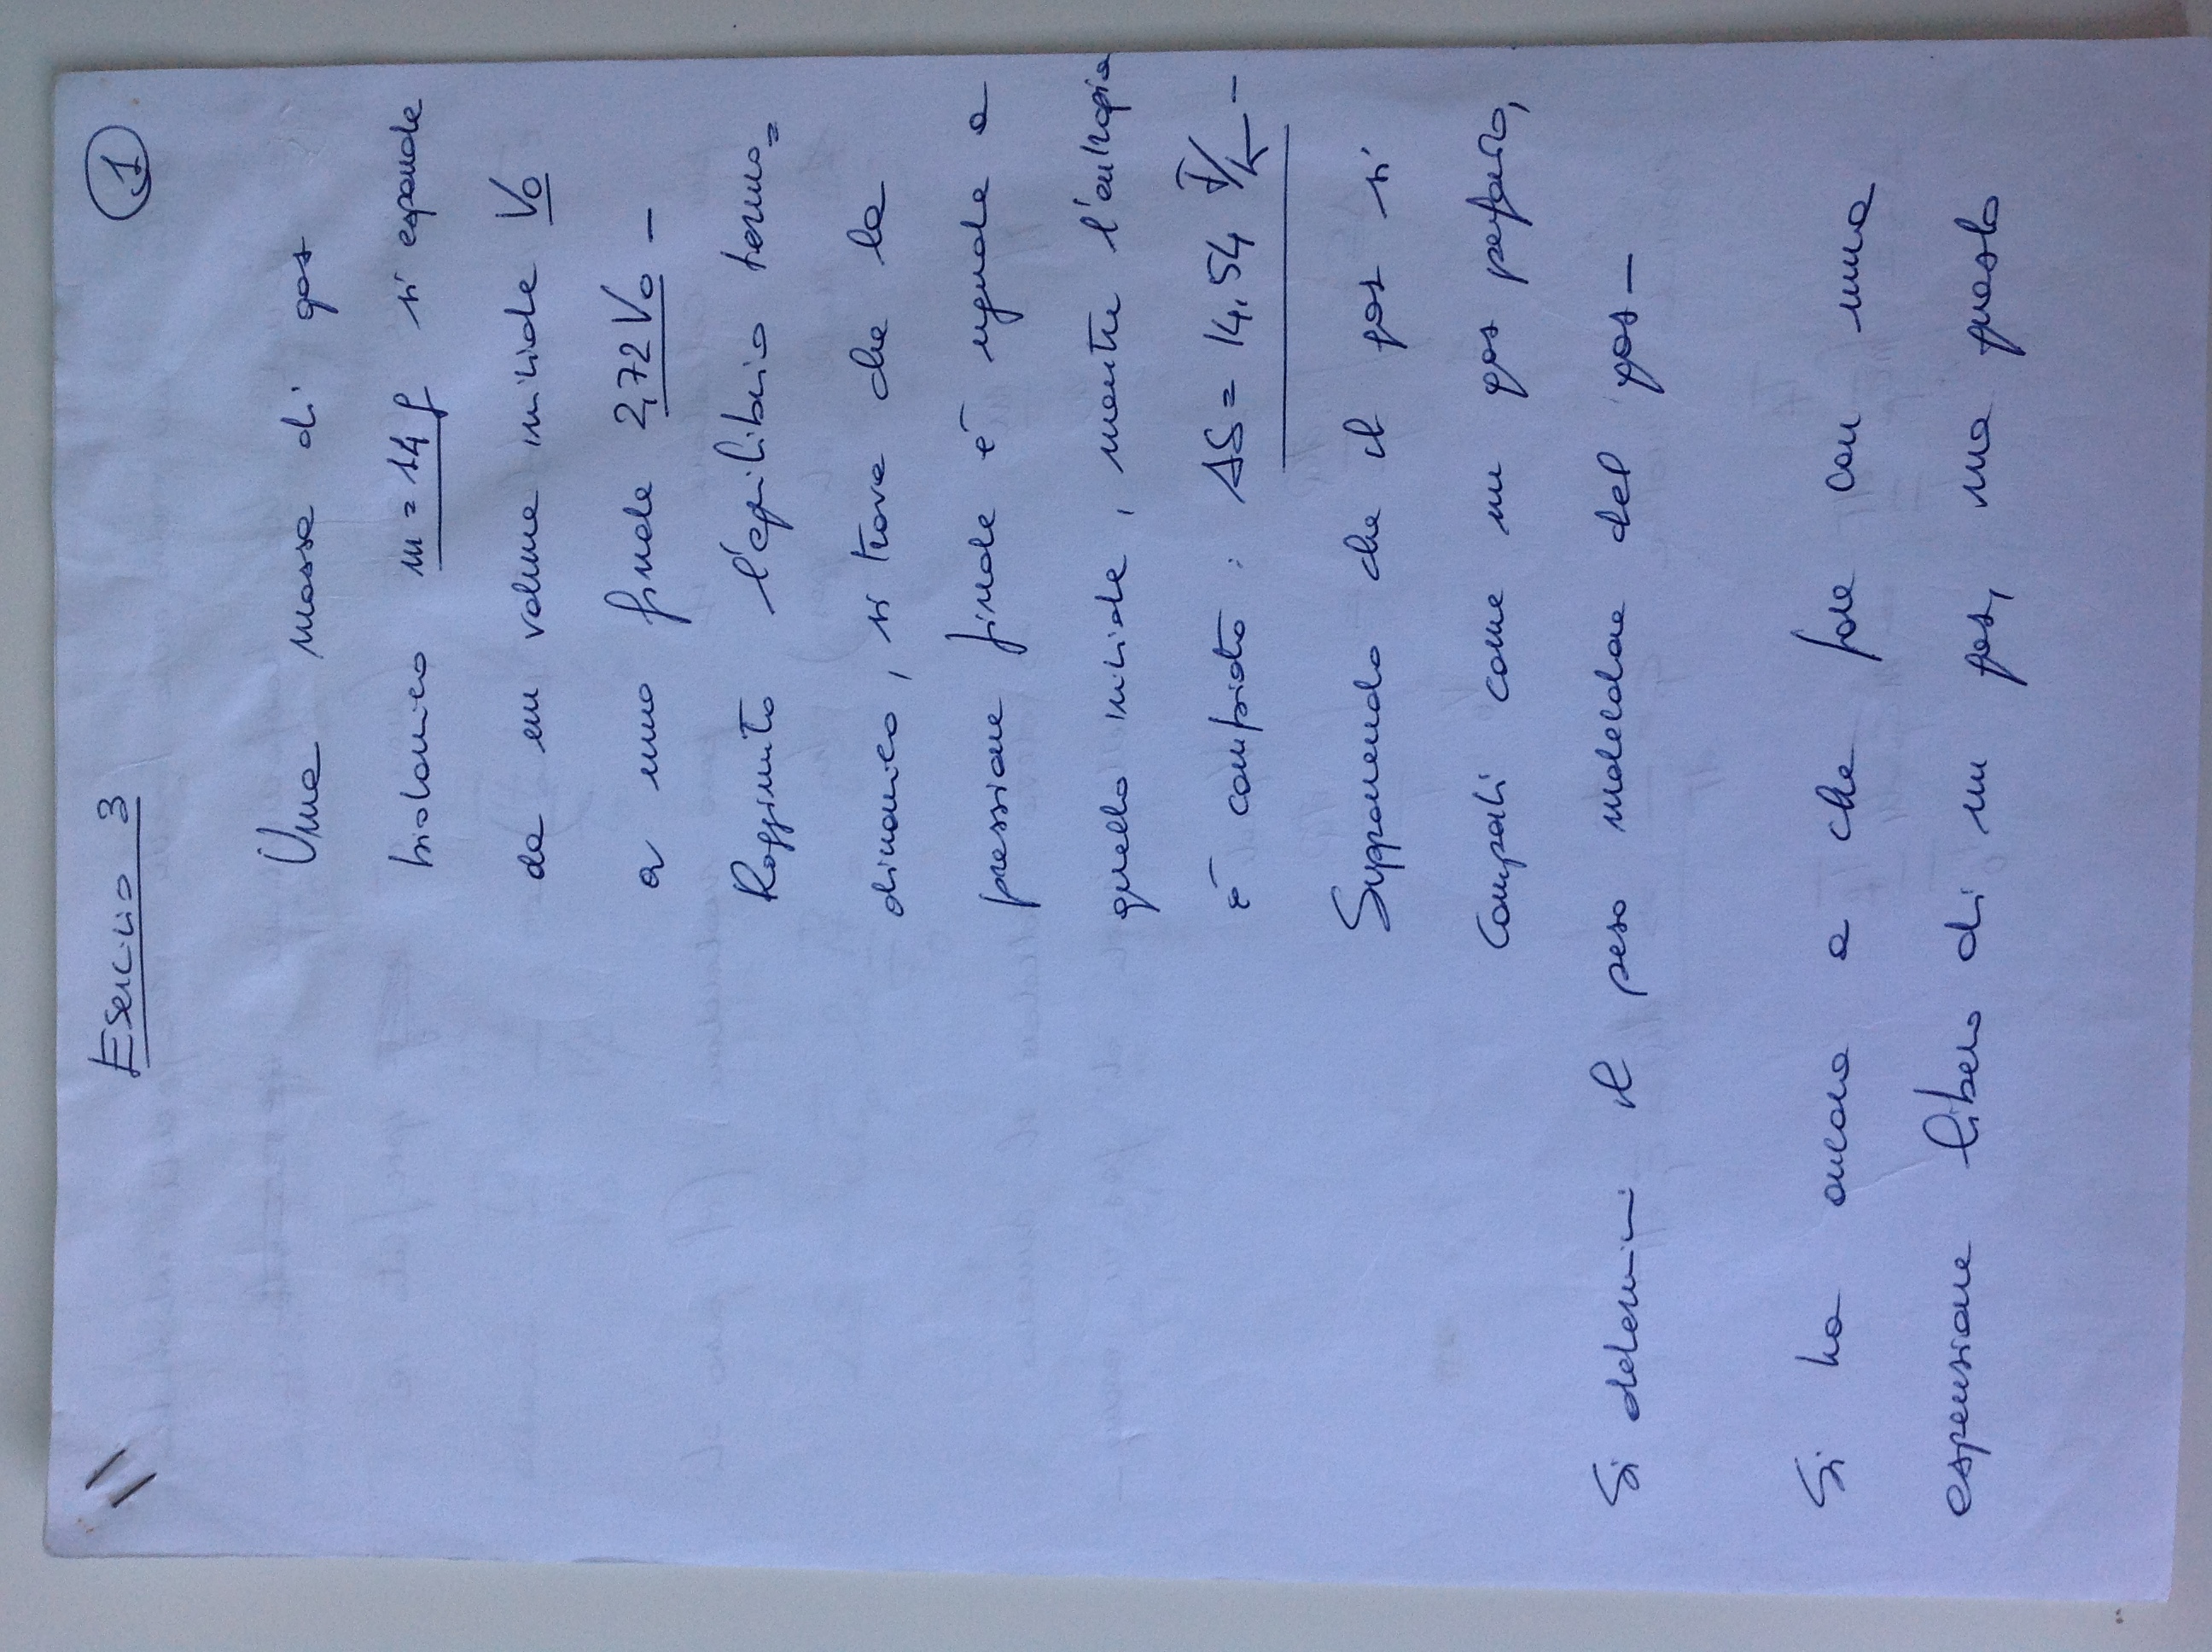 Esercizio 3
1
Una massa di gas
biatomico m = 14 g si espande
da un volume iniziale V₀
a uno finale 2,72 V₀ –
Raggiunto l'equilibrio termo=
dinamico, si trova che la
pressione finale è uguale a
quella iniziale, mentre l'entropia
è cambiata : ΔS = 14,54 J/K –
Supponendo che il gas si
comporti come un gas perfetto,
Si determini il peso molecolare del gas –
Si ha ancora a che fare con una
espansione libera di un gas, ma questa